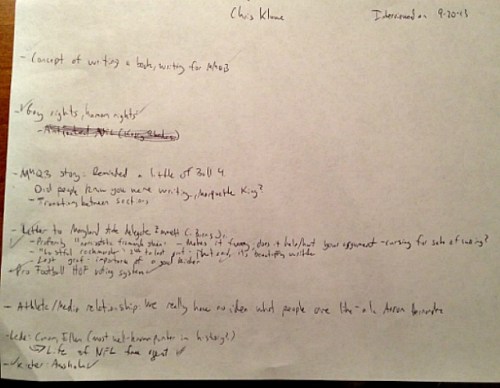 Chris Kluwe Interviewed on 9-20-13
- Concept of writing a book, writing for MMQB
- Gay rights, human rights
- MMQB story: Reminded a little of Ball 4
Did people know you were writing, Marquette King?
- Transitioning between sections
- Letter to Maryland state delegate Emmett C. Burns Jr.
- Profanity - Makes it funny; does it help/hurt your argument - cursing for sake of cursing?
- "lustful cockmonster" beautifully written
- Last graf: importance of a good kicker
- Pro Football HOF voting system
- Athlete/Media relationship: We really have no idea what people are like - a la Aaron Hernandez
- Lede: Conan, Ellen (most well-known punter in history?)
→ Life of NFL free agent
- Kicker: Australia